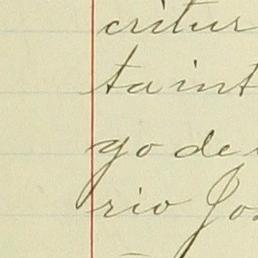 critur
ta int
go de
rio Jos